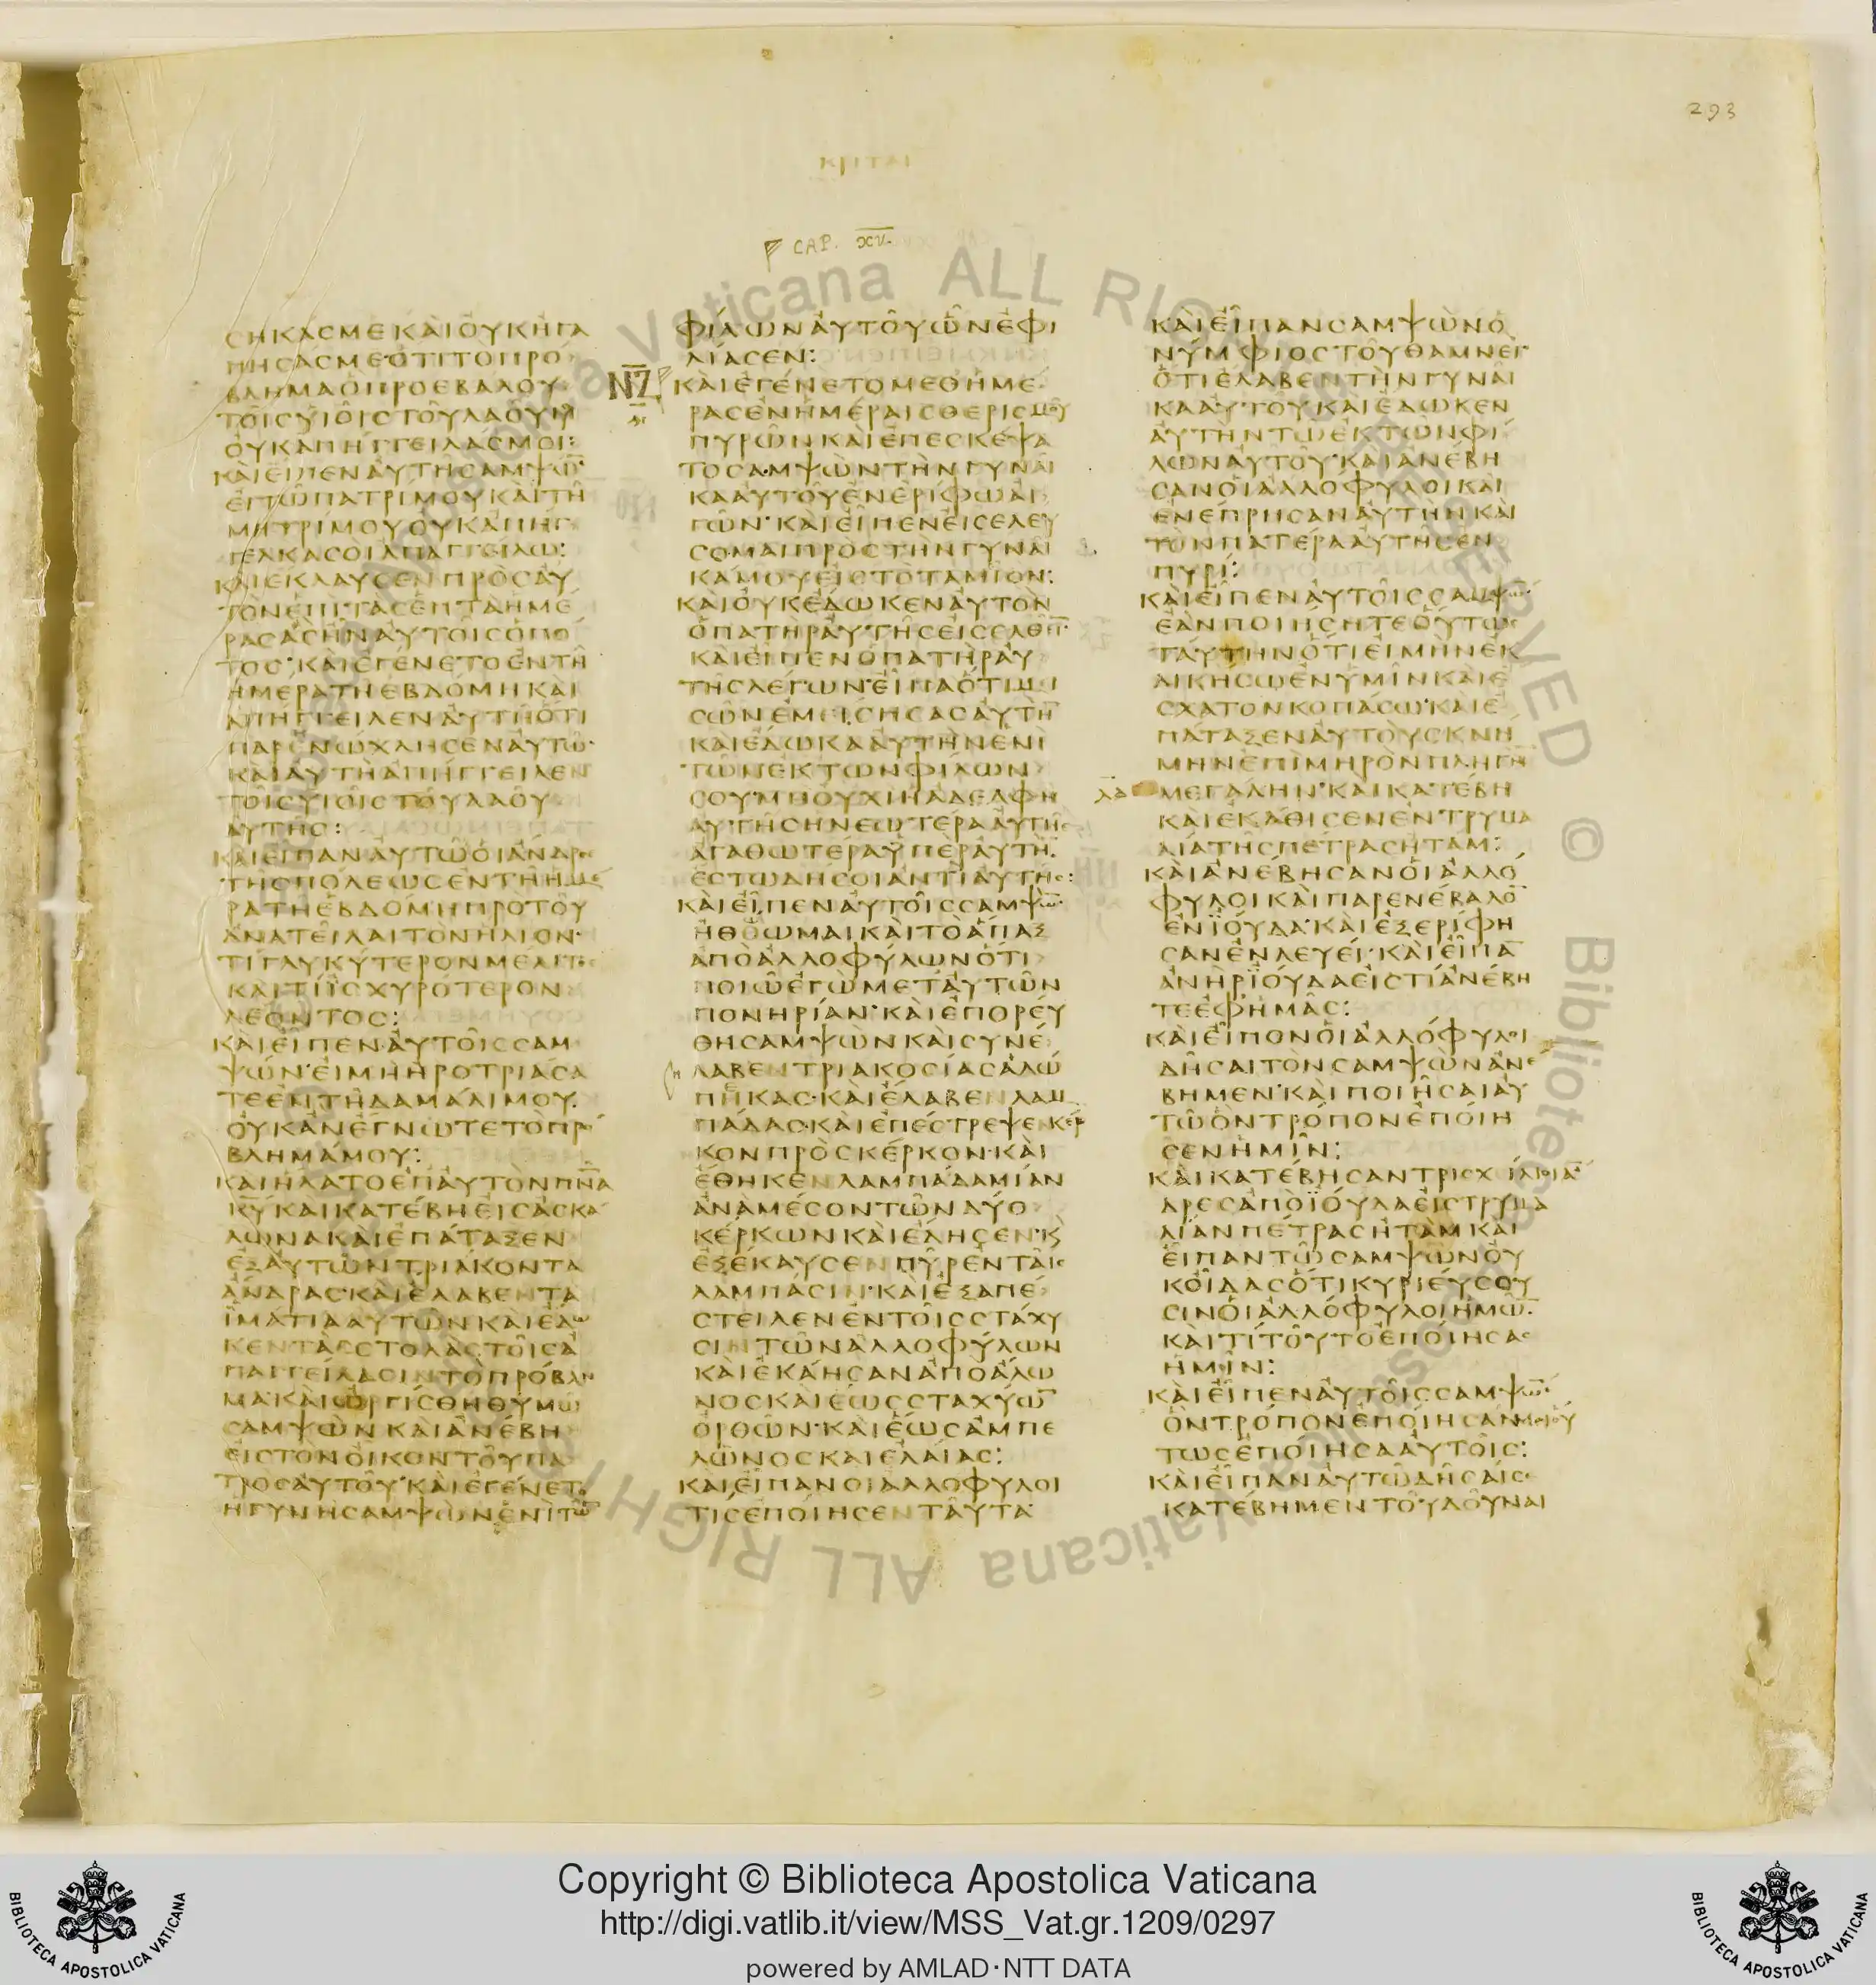 293
ΚΡΙΤΑΙ
CAP. XV.
ΣΗΚΑΣΜΕΚΑΙΟΥΚΗΓΑ
ΠΗΣΑΣΜΕΟΤΙΤΟΠΡΟ
ΒΛΗΜΑΟΠΡΟΕΒΑΛΟΥ
ΤΟΙΣΥΙΟΙΣΤΟΥΛΑΟΥΜ
ΟΥΚΑΠΗΓΓΕΙΛΑΣΜΟΙ:
ΚΑΙΕΙΠΕΝΑΥΤΗΣΑΜΨΩ̅
ΕΓΩΠΑΤΡΙΜΟΥΚΑΙΤΗ
ΜΗΤΡΙΜΟΥΟΥΚΑΠΗΓ
ΓΕΛΚΑΣΟΙΑΠΑΓΓΕΙΛΩ:
ΚΑΙΕΚΛΑΥΣΕΝΠΡΟΣΑΥ
ΤΟΝΕΠΙΤΑΣΕΠΤΑΗΜΕ
ΡΑΣΑΣΗΝΑΥΤΟΙΣΟΠΟ
ΤΟΣ·ΚΑΙΕΓΕΝΕΤΟΕΝΤΗ
ΗΜΕΡΑΤΗΕΒΔΟΜΗΚΑΙ
ΑΠΗΓΓΕΙΛΕΝΑΥΤΗΟΤΙ
ΠΑΡΕΝΩΧΛΗΣΕΝΑΥΤΩ·
ΚΑΙΑΥΤΗΑΠΗΓΓΕΙΛΕΝ
ΤΟΙΣΥΙΟΙΣΤΟΥΛΑΟΥ
ΑΥΤΗΣ:
ΚΑΙΕΙΠΑΝΑΥΤΩΟΙΑΝΔΡΕΣ
ΤΗΣΠΟΛΕΩΣΕΝΤΗΗΜΕ
ΡΑΤΗΕΒΔΟΜΗΠΡΟΤΟΥ
ΑΝΑΤΕΙΛΑΙΤΟΝΗΛΙΟΝ·
ΤΙΓΛΥΚΥΤΕΡΟΝΜΕΛΙΤΟΣ
ΚΑΙΤΙΪΣΧΥΡΟΤΕΡΟΝ
ΛΕΟΝΤΟΣ:
ΚΑΙΕΙΠΕΝΑΥΤΟΙΣΣΑΜ
ΨΩΝ·ΕΙΜΗΗΡΟΤΡΙΑΣΑ
ΤΕΕΝΤΗΔΑΜΑΛΙΜΟΥ
ΟΥΚΑΝΕΓΝΩΤΕΤΟΠΡΟ
ΒΛΗΜΑΜΟΥ:
ΚΑΙΗΛΑΤΟΕΠΑΥΤΟΝΠΝ̅Α
ΚΥ̅ΚΑΙΚΑΤΕΒΗΕΙΣΑΣΚΑ
ΛΩΝΑΚΑΙΕΠΑΤΑΞΕΝ
ΕΞΑΥΤΩΝΤΡΙΑΚΟΝΤΑ
ΑΝΔΡΑΣ·ΚΑΙΕΛΑΒΕΝΤΑ
ΪΜΑΤΙΑΑΥΤΩΝΚΑΙΕΔΩ
ΚΕΝΤΑΣΣΤΟΛΑΣΤΟΙΣΑ
ΠΑΓΓΕΙΛΑΣΙΝΤΟΠΡΟΒΛΗ
ΜΑ·ΚΑΙΩΡΓΙΣΘΗΘΥΜΩ
ΣΑΜΨΩΝΚΑΙΑΝΕΒΗ
ΕΙΣΤΟΝΟΙΚΟΝΤΟΥΠΑ
ΤΡΟΣΑΥΤΟΥ·ΚΑΙΕΓΕΝΕΤΟ
ΗΓΥΝΗΣΑΜΨΩΝΕΝΙΤΩ̅
ΦΙΛΩΝΑΥΤΟΥΩΝΕΦΙ
ΛΙΑΣΕΝ:
ΝΖ
ΚΑΙΕΓΕΝΕΤΟΜΕΘΗΜΕ
ΡΑΣΕΝΗΜΕΡΑΙΣΘΕΡΙΣΜΟΥ
ΠΥΡΩΝΚΑΙΕΠΕΣΚΕΨΑ
ΤΟΣΑΜΨΩΝΤΗΝΓΥΝΑΙ
ΚΑΑΥΤΟΥΕΝΕΡΙΦΩΑΙ
ΓΩΝ·ΚΑΙΕΙΠΕΝΕΙΣΕΛΕΥ
ΣΟΜΑΙΠΡΟΣΤΗΝΓΥΝΑΙ
ΚΑΜΟΥΕΙΣΤΟΤΑΜΙΟΝ:
ΚΑΙΟΥΚΕΔΩΚΕΝΑΥΤΟΝ
ΟΠΑΤΗΡΑΥΤΗΣΕΙΣΕΛΘΕΙ̅
ΚΑΙΕΙΠΕΝΟΠΑΤΗΡΑΥ
ΤΗΣΛΕΓΩΝ·ΕΙΠΑΟΤΙΜΙ
ΣΩΝΕΜΕΙΣΗΣΑΣΑΥΤΗ̅
ΚΑΙΕΔΩΚΑΑΥΤΗΝΕΝΙ
ΤΩΝΕΚΤΩΝΦΙΛΩΝ
ΣΟΥ·ΜΗΟΥΧΙΗΑΔΕΛΦΗ
ΑΥΤΗΣΗΝΕΩΤΕΡΑΑΥΤΗΣ
ΑΓΑΘΩΤΕΡΑΫΠΕΡΑΥΤΗ̅
ΕΣΤΩΔΗΣΟΙΑΝΤΙΑΥΤΗΣ:
ΚΑΙΕΙΠΕΝΑΥΤΟΙΣΣΑΜΨΩ̅
ΗΘΟΩΜΑΙΚΑΙΤΟΑΠΑΞ
ΑΠΟΑΛΛΟΦΥΛΩΝΟΤΙ
ΠΟΙΩΕΓΩΜΕΤΑΥΤΩΝ
ΠΟΝΗΡΙΑΝ·ΚΑΙΕΠΟΡΕΥ
ΘΗΣΑΜΨΩΝΚΑΙΣΥΝΕ
ΛΑΒΕΝΤΡΙΑΚΟΣΙΑΣΑΛΩ
ΠΗΚΑΣ·ΚΑΙΕΛΑΒΕΝΛΑΜ
ΠΑΔΑΣ·ΚΑΙΕΠΕΣΤΡΕΨΕΝΚΕΡ
ΚΟΝΠΡΟΣΚΕΡΚΟΝ·ΚΑΙ
ΕΘΗΚΕΝΛΑΜΠΑΔΑΜΙΑΝ
ΑΝΑΜΕΣΟΝΤΩΝΔΥΟ
ΚΕΡΚΩΝΚΑΙΕΔΗΣΕΝ·Κ
ΕΞΕΚΑΥΣΕΝΠΥΡΕΝΤΑΙΣ
ΛΑΜΠΑΣΙΝ·ΚΑΙΕΞΑΠΕ
ΣΤΕΙΛΕΝΕΝΤΟΙΣΣΤΑΧΥ
ΣΙΝΤΩΝΑΛΛΟΦΥΛΩΝ
ΚΑΙΕΚΑΗΣΑΝΑΠΟΑΛΩ
ΝΟΣΚΑΙΕΩΣΣΤΑΧΥΩ̅
ΟΡΘΩΝ·ΚΑΙΕΩΣΑΜΠΕ
ΛΩΝΟΣΚΑΙΕΛΑΙΑΣ:
ΚΑΙΕΙΠΑΝΟΙΑΛΛΟΦΥΛΟΙ
ΤΙΣΕΠΟΙΗΣΕΝΤΑΥΤΑ
ΚΑΙΕΙΠΑΝΣΑΜΨΩΝΟ
ΝΥΜΦΙΟΣΤΟΥΘΑΜΝΕΙ
ΟΤΙΕΛΑΒΕΝΤΗΝΓΥΝΑΙ
ΚΑΑΥΤΟΥΚΑΙΕΔΩΚΕΝ
ΑΥΤΗΝΤΩΕΚΤΩΝΦΙ
ΛΩΝΑΥΤΟΥ·ΚΑΙΑΝΕΒΗ
ΣΑΝΟΙΑΛΛΟΦΥΛΟΙΚΑΙ
ΕΝΕΠΡΗΣΑΝΑΥΤΗΝΚΑΙ
ΤΟΝΠΑΤΕΡΑΑΥΤΗΣΕΝ
ΠΥΡΙ:
ΚΑΙΕΙΠΕΝΑΥΤΟΙΣΣΑΜΨΩ̅
ΕΑΝΠΟΙΗΣΗΤΕΟΥΤΩΣ
ΤΑΥΤΗΝΟΤΙΕΙΜΗΝΕΚ
ΔΙΚΗΣΩΕΝΥΜΙΝΚΑΙΕ
ΣΧΑΤΟΝΚΟΠΑΣΩ·ΚΑΙΕ
ΠΑΤΑΞΕΝΑΥΤΟΥΣΚΝΗ
ΜΗΝΕΠΙΜΗΡΟΝΠΛΗΓΗ̅
ΛΑ
ΜΕΓΑΛΗΝ·ΚΑΙΚΑΤΕΒΗ
ΚΑΙΕΚΑΘΙΣΕΝΕΝΤΡΥΜΑ
ΛΙΑΤΗΣΠΕΤΡΑΣΗΤΑΜ:
ΚΑΙΑΝΕΒΗΣΑΝΟΙΑΛΛΟ
ΦΥΛΟΙΚΑΙΠΑΡΕΝΕΒΑΛΟ̅
ΕΝΪΟΥΔΑ·ΚΑΙΕΞΕΡΙΦΗ
ΣΑΝΕΝΛΕΥΕΙ·ΚΑΙΕΙΠΑ̅
ΑΝΗΡΪΟΥΔΑΕΙΣΤΙΑΝΕΒΗ
ΤΕΕΦΗΜΑΣ:
ΚΑΙΕΙΠΟΝΟΙΑΛΛΟΦΥΛΟΙ
ΔΗΣΑΙΤΟΝΣΑΜΨΩΝΑΝΕ
ΒΗΜΕΝ·ΚΑΙΠΟΙΗΣΑΙΑΥ
ΤΩΟΝΤΡΟΠΟΝΕΠΟΙΗ
ΣΕΝΗΜΙΝ:
ΚΑΙΚΑΤΕΒΗΣΑΝΤΡΙΣΧΙΛΙΟΙΑ̅
ΔΡΕΣΑΠΟΪΟΥΔΑΕΙΣΤΡΥΜΑ
ΛΙΑΝΠΕΤΡΑΣΗΤΑΜΚΑΙ
ΕΙΠΑΝΤΩΣΑΜΨΩΝΟΥ
ΚΟΙΔΑΣΟΤΙΚΥΡΙΕΥΣΟΥ
ΣΙΝΟΙΑΛΛΟΦΥΛΟΙΗΜΩ̅
ΚΑΙΤΙΤΟΥΤΟΕΠΟΙΗΣΑΣ
ΗΜΙΝ:
ΚΑΙΕΙΠΕΝΑΥΤΟΙΣΣΑΜΨΩ̅
ΟΝΤΡΟΠΟΝΕΠΟΙΗΣΑΝΜΟΙΟΥ
ΤΩΣΕΠΟΙΗΣΑΑΥΤΟΙΣ:
ΚΑΙΕΙΠΑΝΑΥΤΩΔΗΣΑΙΣΕ
ΚΑΤΕΒΗΜΕΝΤΟΥΔΟΥΝΑΙ
Copyright © Biblioteca Apostolica Vaticana
http://digi.vatlib.it/view/MSS_Vat.gr.1209/0297
powered by AMLAD·NTT DATA
BIBLIOTECA APOSTOLICA VATICANA
BIBLIOTECA APOSTOLICA VATICANA